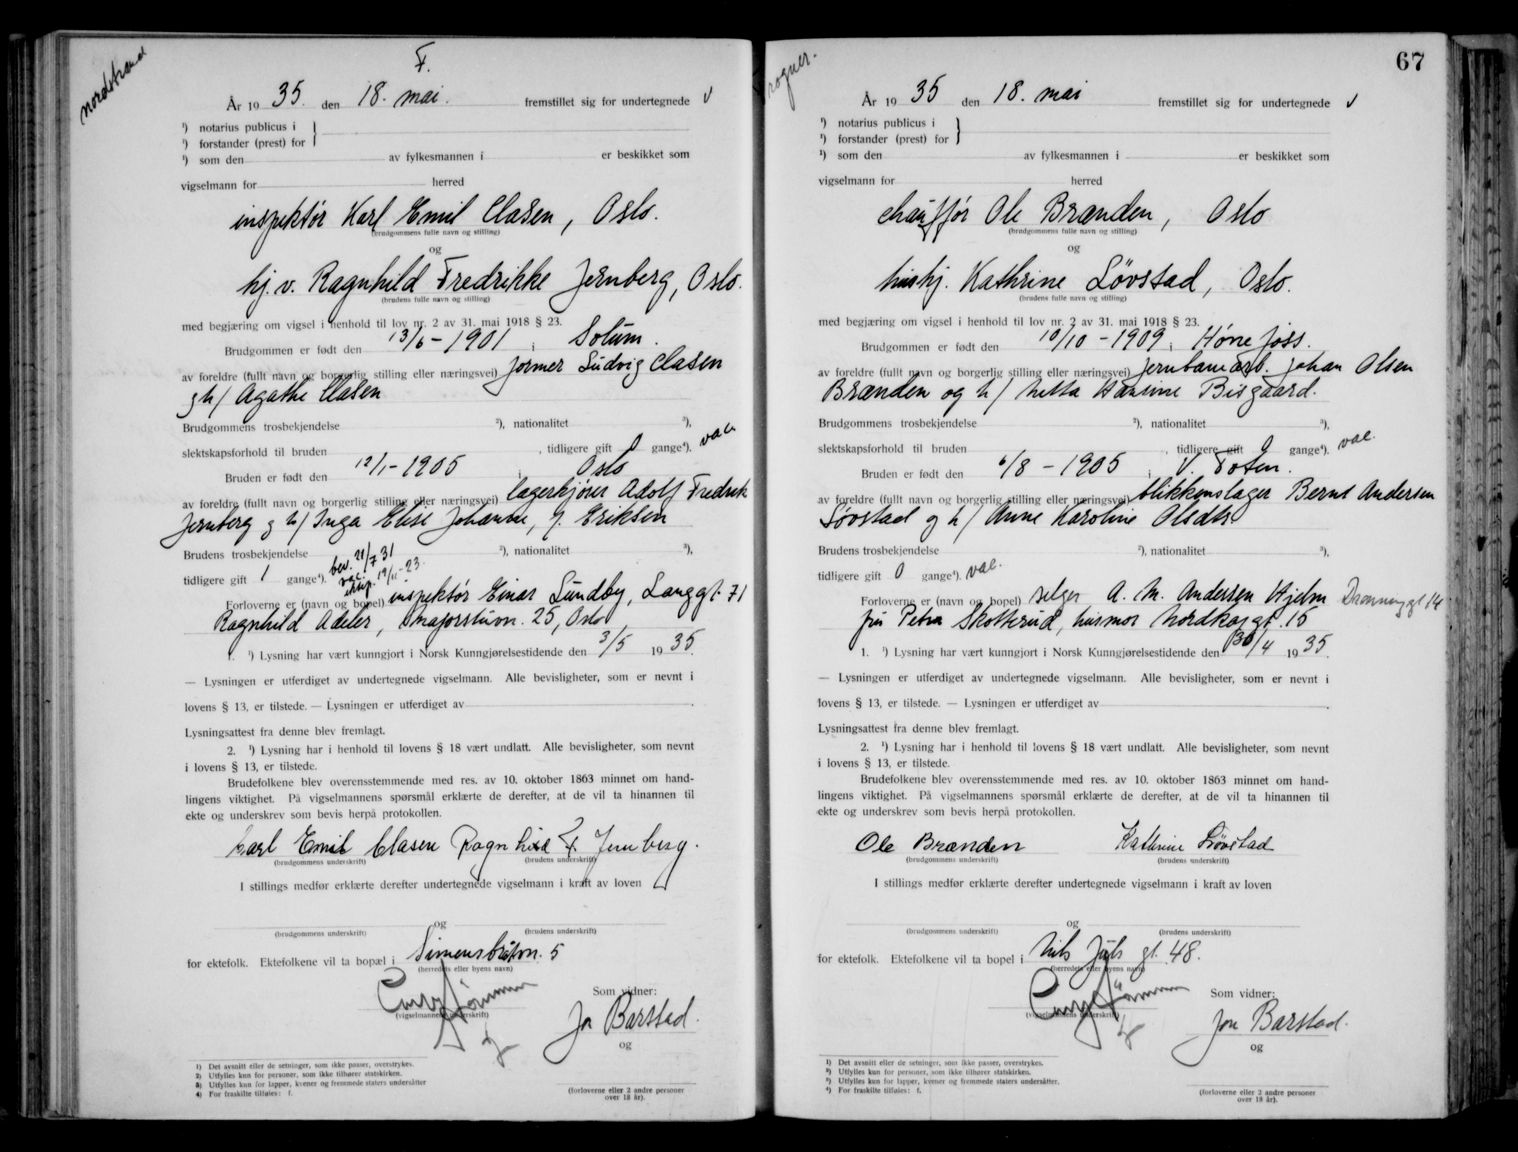 Nordstrand
F.
År 19 35. den 18. mai. fremstillet sig for undertegnede v
¹) notarius publicus i
¹) forstander (prest) for
¹) som den av fylkesmannen i er beskikket som
vigselmann for herred
inspektør Karl Emil Clasen, Oslo.
(brudgommens fulle navn og stilling)
og
hj.v. Ragnhild Fredrikke Jernberg, Oslo.
(brudens fulle navn og stilling)
med begjæring om vigsel i henhold til lov nr. 2 av 31. mai 1918 § 23.
Brudgommen er født den 13/6 - 1901 i Solum.
av foreldre (fullt navn og borgerlig stilling eller næringsvei) former Ludvig Clasen
og h/ Agathe Clasen
Brudgommens trosbekjendelse ²), nationalitet ³),
slektskapsforhold til bruden , tidligere gift 0 gange⁴). vac.
Bruden er født den 12/1 - 1905 i Oslo
av foreldre (fullt navn og borgerlig stilling eller næringsvei) lagerkjører Adolf Fredrik
Jernberg og h/ Inga Elise Johanne, f. Eriksen
Brudens trosbekjendelse ²), nationalitet ³),
tidligere gift 1 gange⁴). bev. 21/7 31
vac.
ektep. 19/11-23.
Forloverne er (navn og bopel) inspektør Einar Lundby, Langgt. 71
Ragnhild Adeler, Majorstuvn. 25, Oslo
1. ¹) Lysning har vært kunngjort i Norsk Kunngjørelsestidende den 3/5 19 35.
— Lysningen er utferdiget av undertegnede vigselmann. Alle bevisligheter, som er nevnt i
lovens § 13, er tilstede. — Lysningen er utferdiget av .
Lysningsattest fra denne blev fremlagt.
2. ¹) Lysning har i henhold til lovens § 18 vært undlatt. Alle bevisligheter, som nevnt
i lovens § 13, er tilstede.
Brudefolkene blev overensstemmende med res. av 10. oktober 1863 minnet om hand-
lingens viktighet. På vigselmannens spørsmål erklærte de derefter, at de vil ta hinannen til
ekte og underskrev som bevis herpå protokollen.
Carl Emil Clasen Ragnhild F. Jernberg.
(brudgommens underskrift) (brudens underskrift)
I stillings medfør erklærte derefter undertegnede vigselmann i kraft av loven
og
(brudgommens underskrift) (brudens underskrift)
for ektefolk. Ektefolkene vil ta bopæl i Simensbråtvn. 5
(herredets eller byens navn)
(vigselmannens underskrift)
Som vidner:
Jon Barstad.
og
(forloverne eller 2 andre personer
over 18 år).
1) Det avsnitt eller de setninger, som ikke passer, overstrykes.
2) Utfylles kun for personer, som ikke tilhører statskirken.
3) Utfylles kun for lapper, kvener og fremmede staters undersåtter
4) For fraskilte tilføies: f.
67
År 19 35 den 18. mai fremstillet sig for undertegnede v
¹) notarius publicus i
¹) forstander (prest) for
¹) som den av fylkesmannen i er beskikket som
vigselmann for herred
chauffør Ole Brænden, Oslo
(brudgommens fulle navn og stilling)
og
hushj. Kathrine Løvstad, Oslo.
(brudens fulle navn og stilling)
med begjæring om vigsel i henhold til lov nr. 2 av 31. mai 1918 § 23.
Brudgommen er født den 10/10 - 1909 i Hønefoss.
av foreldre (fullt navn og borgerlig stilling eller næringsvei) jernbanearb. Johan Olsen
Brænden og h/ Netta Hansine Bisgaard.
Brudgommens trosbekjendelse ²), nationalitet ³),
slektskapsforhold til bruden , tidligere gift 0 gange⁴). vac.
Bruden er født den 6/8 - 1905 i V. Toten.
av foreldre (fullt navn og borgerlig stilling eller næringsvei) blikkenslager Bernt Andersen
Løvstad og h/ Anne Karoline Olsdtr
Brudens trosbekjendelse ²), nationalitet ³),
tidligere gift 0 gange⁴). vac.
Forloverne er (navn og bopel) selger A. M. Andersen Hjelm Dronningsgt 14
fru Petra Skotterud, husmor Nordkapgt. 15
1. ¹) Lysning har vært kunngjort i Norsk Kunngjørelsestidende den 30/4 19 35.
— Lysningen er utferdiget av undertegnede vigselmann. Alle bevisligheter, som er nevnt i
lovens § 13, er tilstede. — Lysningen er utferdiget av .
Lysningsattest fra denne blev fremlagt.
2. ¹) Lysning har i henhold til lovens § 18 vært undlatt. Alle bevisligheter, som nevnt
i lovens § 13, er tilstede.
Brudefolkene blev overensstemmende med res. av 10. oktober 1863 minnet om hand-
lingens viktighet. På vigselmannens spørsmål erklærte de derefter, at de vil ta hinannen til
ekte og underskrev som bevis herpå protokollen.
Ole Brænden Kathrine Løvstad
(brudgommens underskrift) (brudens underskrift)
I stillings medfør erklærte derefter undertegnede vigselmann i kraft av loven
og
(brudgommens underskrift) (brudens underskrift)
for ektefolk. Ektefolkene vil ta bopel i Nils Juels gt. 48.
(herredets eller byens navn)
(vigselmannens underskrift)
Som vidner:
Jon Barstad.
og
(forloverne eller 2 andre personer
over 18 år).
1) Det avsnitt eller de setninger, som ikke passer, overstrykes.
2) Utfylles kun for personer, som ikke tilhører statskirken.
3) Utfylles kun for lapper, kvener og fremmede staters undersåtter.
4) For fraskilte tilføies: f.